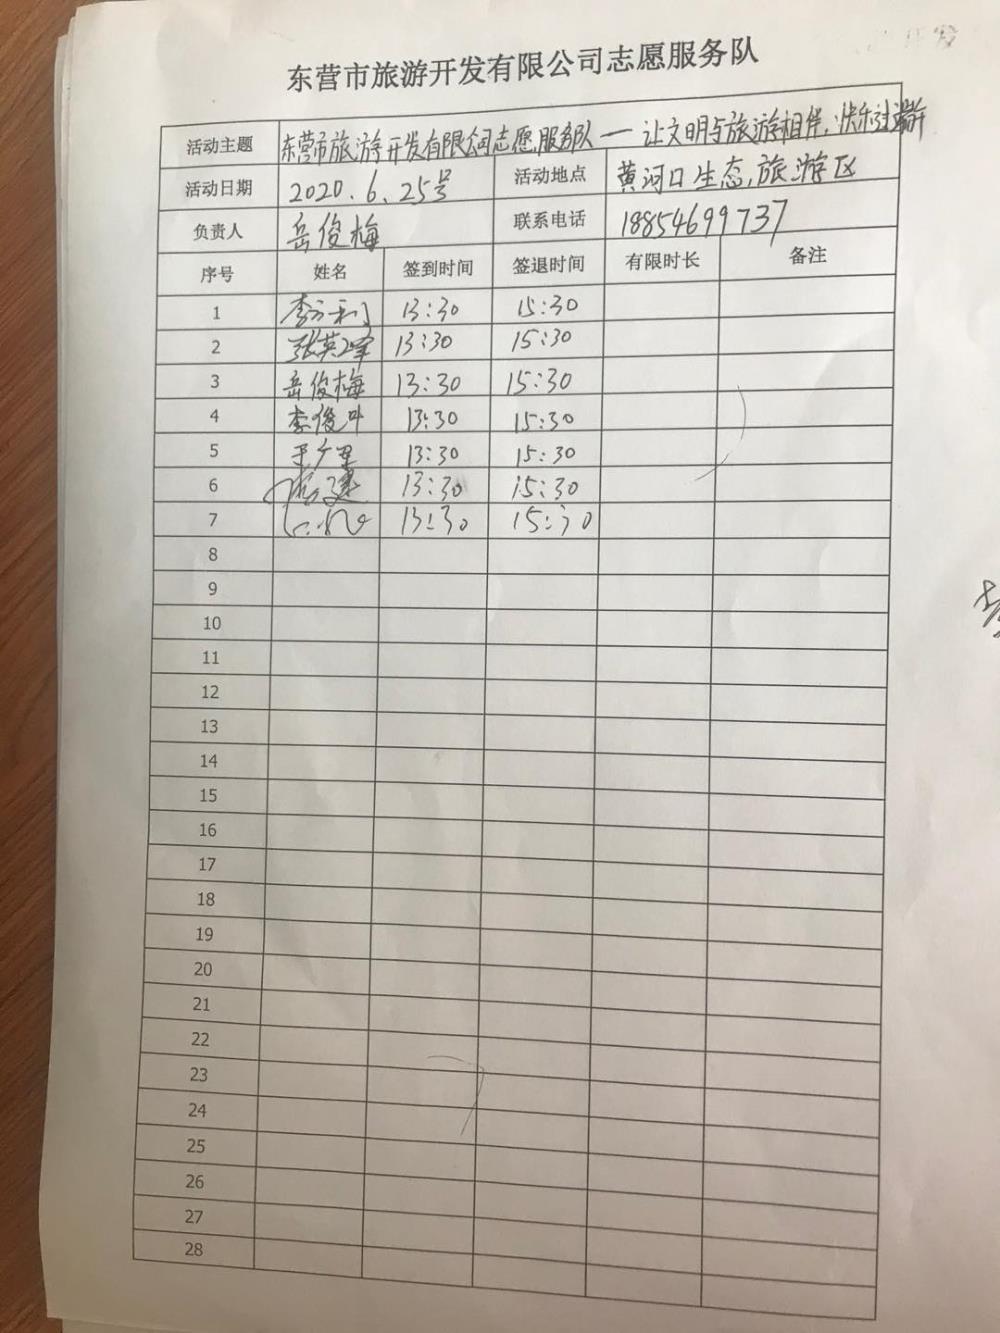 东营市旅游开发有限公司志愿服务队
活动主题 东营市旅游开发有限公司志愿服务队—让文明与旅游相伴,快乐过端午
活动日期 2020.6.25号 活动地点 黄河口生态旅游区
负责人 岳俊梅 联系电话 18854699737
序号 姓名 签到时间 签退时间 有限时长 备注
1 13:30 15:30
2 张英峰 13:30 15:30
3 岳俊梅 13:30 15:30
4 李俊叶 13:30 15:30
5 13:30 15:30
6 13:30 15:30
7 13:30 15:30
8
9
10
11
12
13
14
15
16
17
18
19
20
21
22
23
24
25
26
27
28